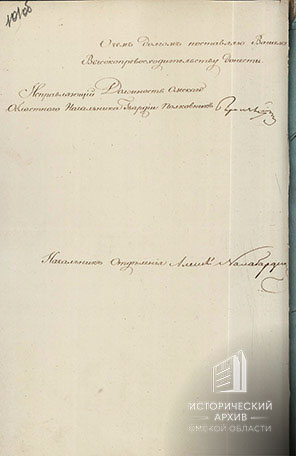 О чемъ долгомъ поставляю Вашему
Высокопревосходительству донести.
Исправляющій Должность Омскаго
Областнаго Начальника Гвардіи Полковникъ
Начальникъ Отдѣленія
ИСТОРИЧЕСКИЙ
АРХИВ
ОМСКОЙ ОБЛАСТИ